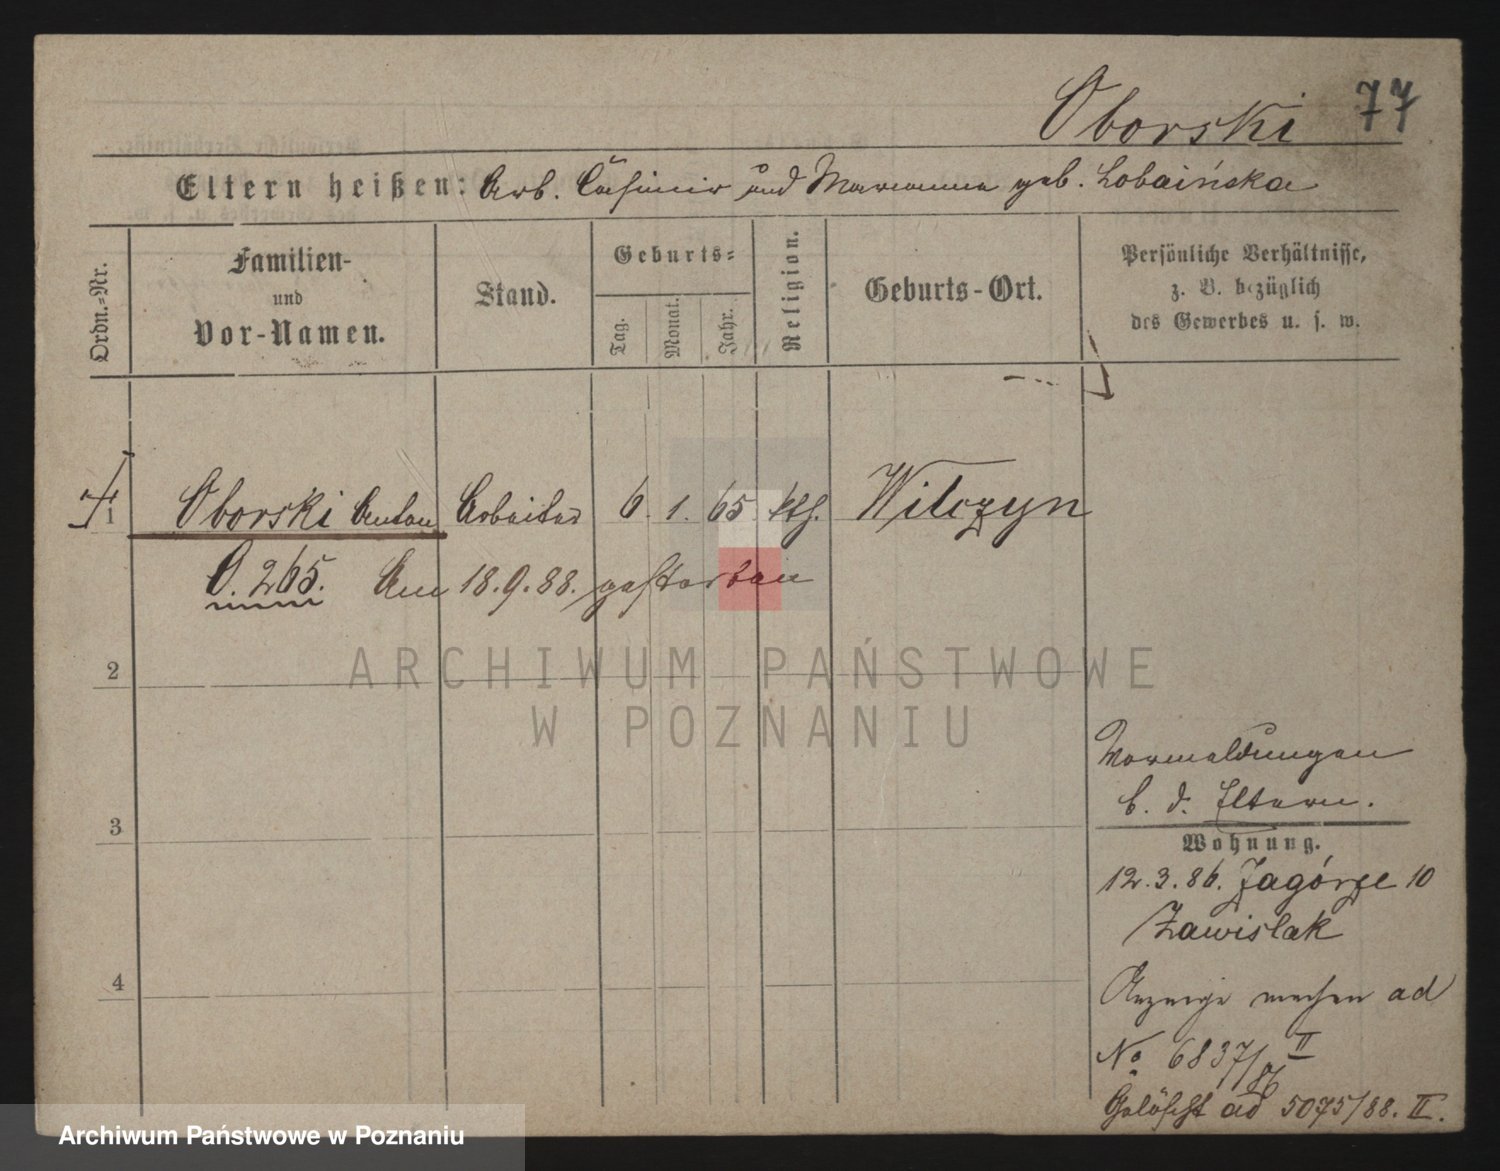 Oborski 77
Eltern heißen: Arb. Casimir und Marianna geb. Lobaińska
Ordn.=Nr.
Familien-
und
Vor-Namen.
Stand.
Geburts=
Tag.
Monat.
Jahr.
Religion.
Geburts-Ort.
Persönliche Verhältnisse,
z. B. bezüglich
des Gewerbes u. s. w.
1 Oborski Anton Arbeiter 6. 1. 65. kth. Wilczyn
O. 265. Am 18.9.88. gestorben
2
ARCHIWUM PAŃSTWOWE
W POZNANIU
3
4
Vormeldungen
b. d. Eltern.
Wohnung.
12.3.86. Zagórze 10
Zawislak
Anzeige machen ad
No 6837/86 II
Gelöscht ad 5075/88. II.
Archiwum Państwowe w Poznaniu